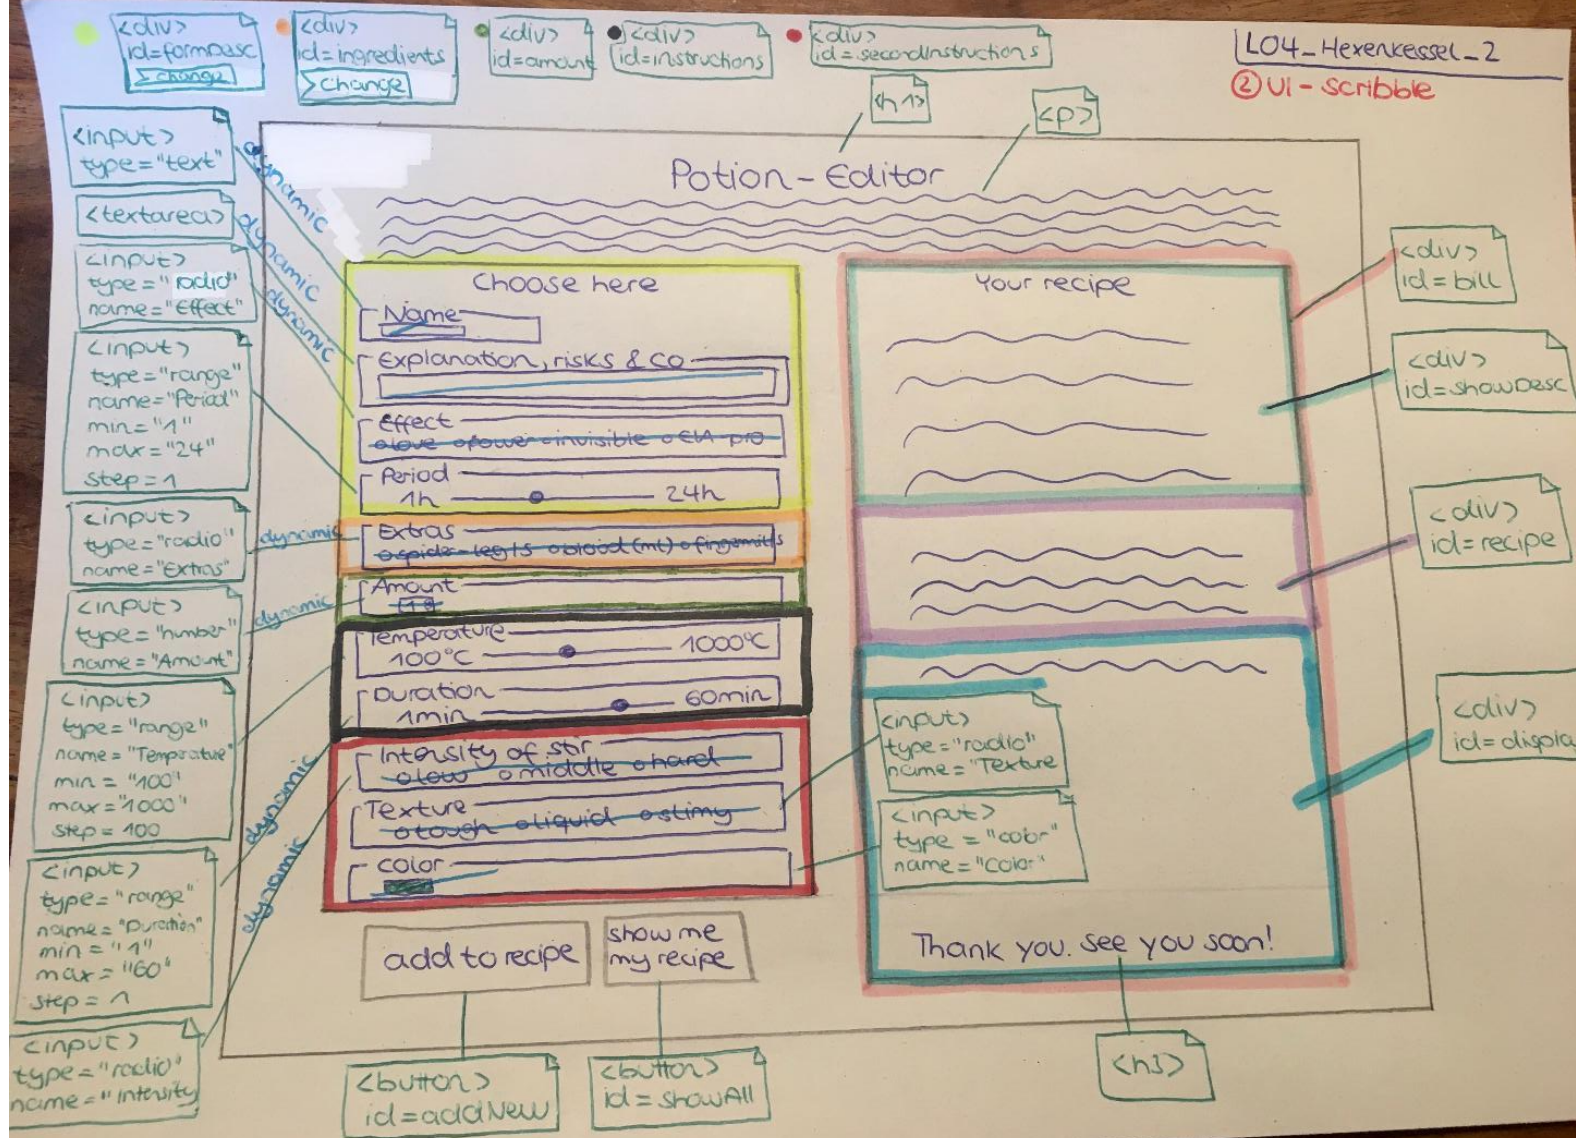 <div>
id=formDesc
change
<div>
id=ingredients
change
<div>
id=amount
<div>
id=instructions
<div>
id=secondInstructions
L04_Hexenkessel_2
② UI - Scribble
<h1>
<p>
Potion-Editor
<input>
type="text"
dynamic
<textarea>
dynamic
<input>
type="radio"
name="Effect"
dynamic
<input>
type="range"
name="Period"
min="1"
max="24"
step=1
<input>
type="radio"
name="Extras"
dynamic
<input>
type="number"
name="Amount"
dynamic
<input>
type="range"
name="Temperature"
min="100"
max="1000"
step=100
<input>
type="range"
name="Duration"
min="1"
max="60"
step=1
dynamic
<input>
type="radio"
name="Intensity
dynamic
Choose here
Name
Explanation, risks & co
Effect
love power invisible EIA pro
Period
1h 24h
Extras
spider-legs blood (ml)
Amount
Temperature
100°C 1000°C
Duration
1min 60min
Intensity of stir
low middle hard
Texture
tough liquid slimy
Color
add to recipe
show me
my recipe
<button>
id=addNew
<button>
id=showAll
Your recipe
<input>
type="radio"
name="Texture
<input>
type="color"
name="Color"
Thank you. See you soon!
<h3>
<div>
id=bill
<div>
id=showDesc
<div>
id=recipe
<div>
id=displa